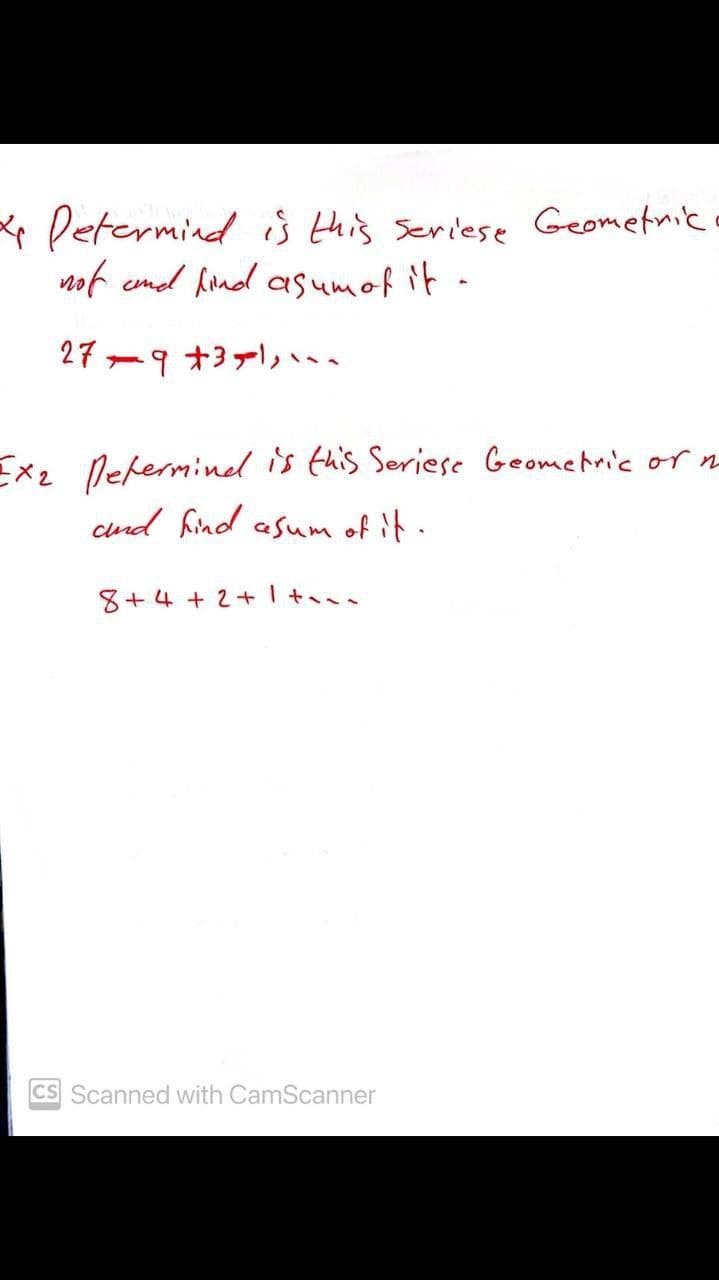 x1 Determind is this seriese Geometric
not and find asum of it.
27 - 9 + 3 - 1, ...
Ex2 Determined is this Seriese Geometric or n
and find asum of it.
8 + 4 + 2 + 1 + ...
CS Scanned with CamScanner